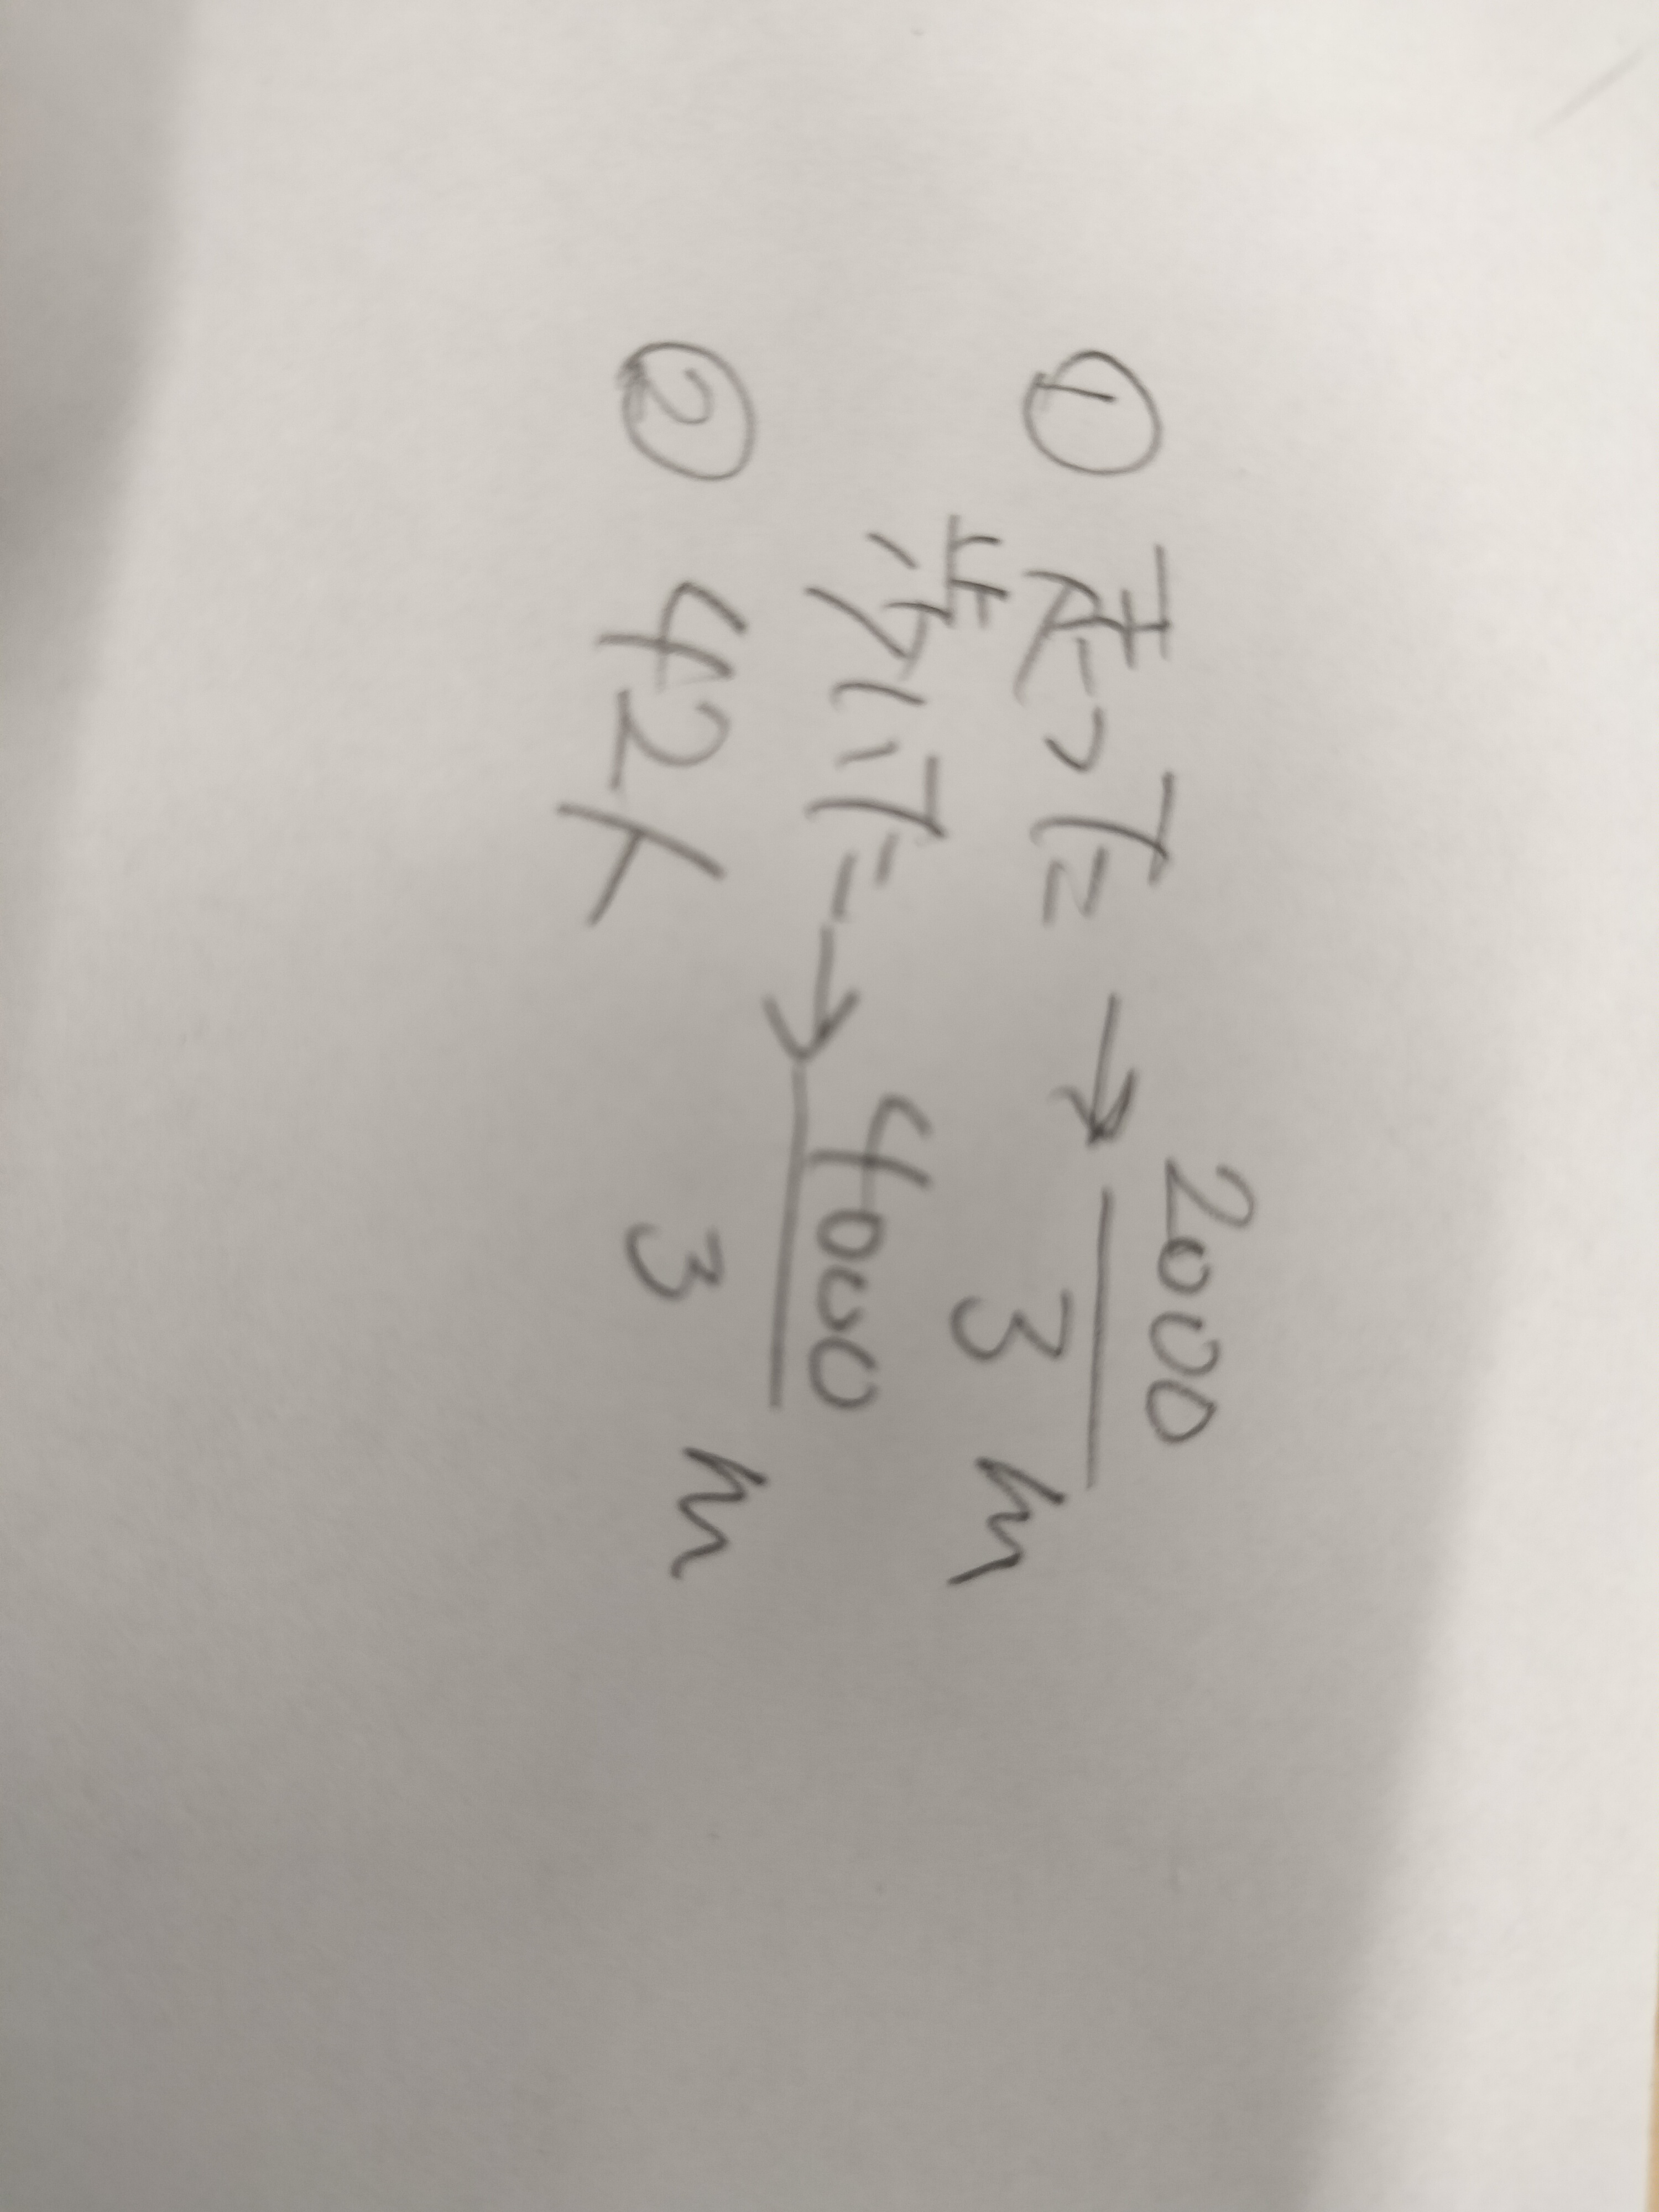 ① 走った → 2000/3 m
歩いた → 4000/3 m
② 42人